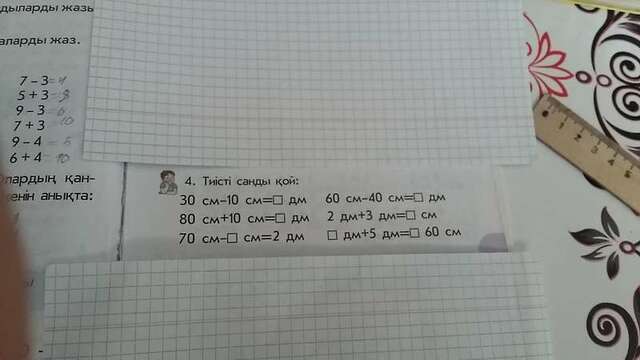 дыларды жазы
аларды жаз.
7 – 3 4
5 + 3 8
9 – 3 6
7 + 3 10
9 – 4 5
6 + 4 10
лардың қан-
енін анықта:
4. Тиісті санды қой:
30 см–10 см=□ дм 60 см–40 см=□ дм
80 см+10 см=□ дм 2 дм+3 дм=□ см
70 см–□ см=2 дм □ дм+5 дм=□ 60 см